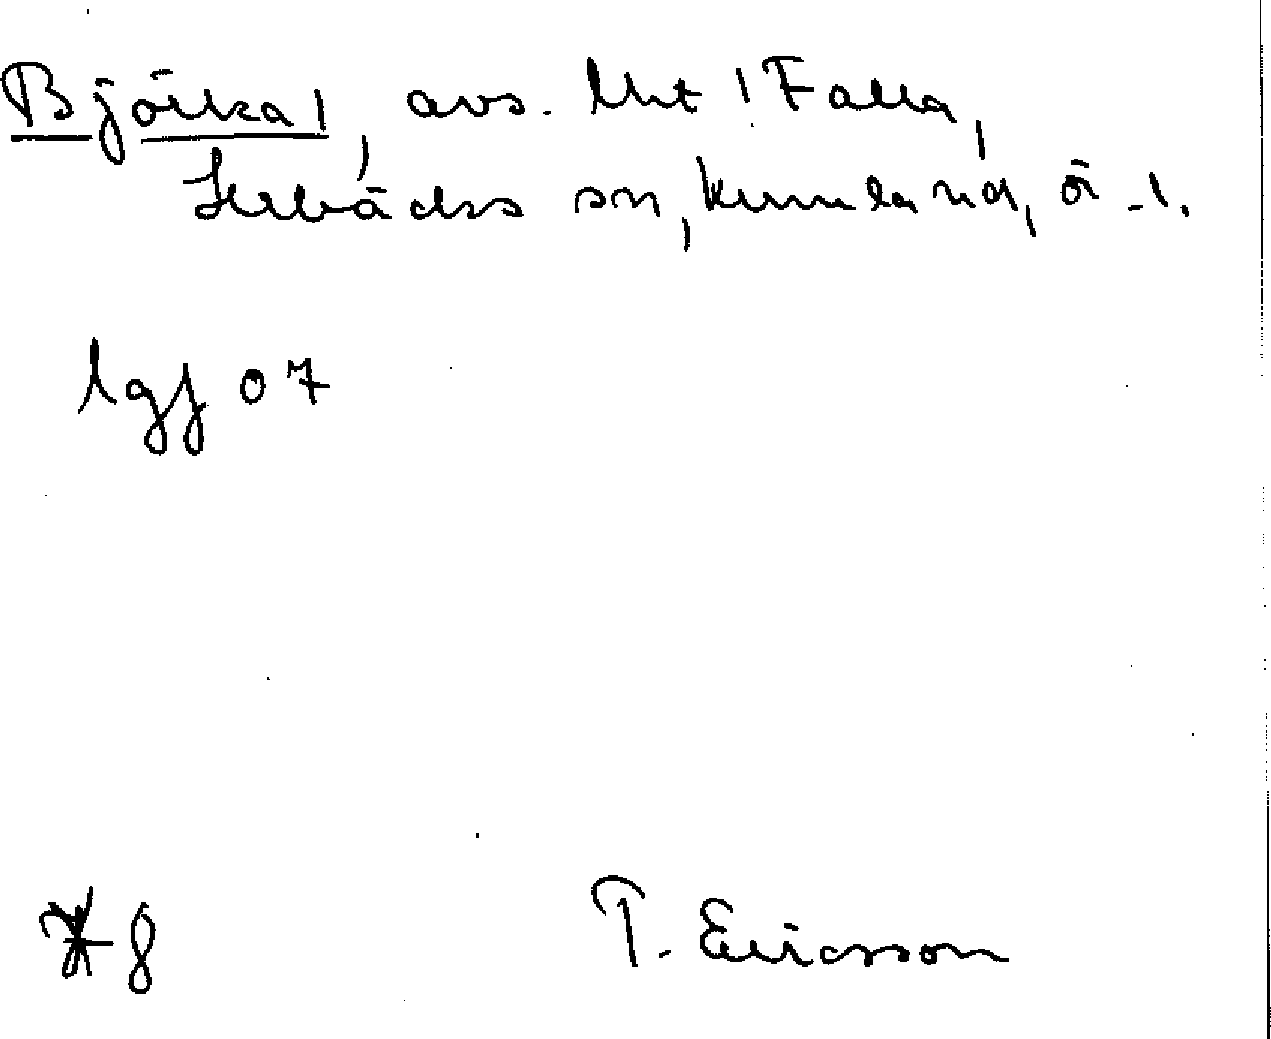 Björka l, avs. lht i Falla,
Ekebäcks sn, Kumla hd, ö-l.
lgf 07
8
T. Ericsson